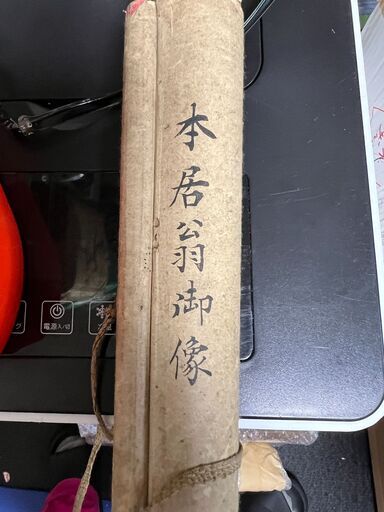 本居翁御像
電源入/切